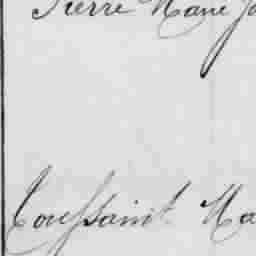 Pierre Marie Jo
Toussaint Ma